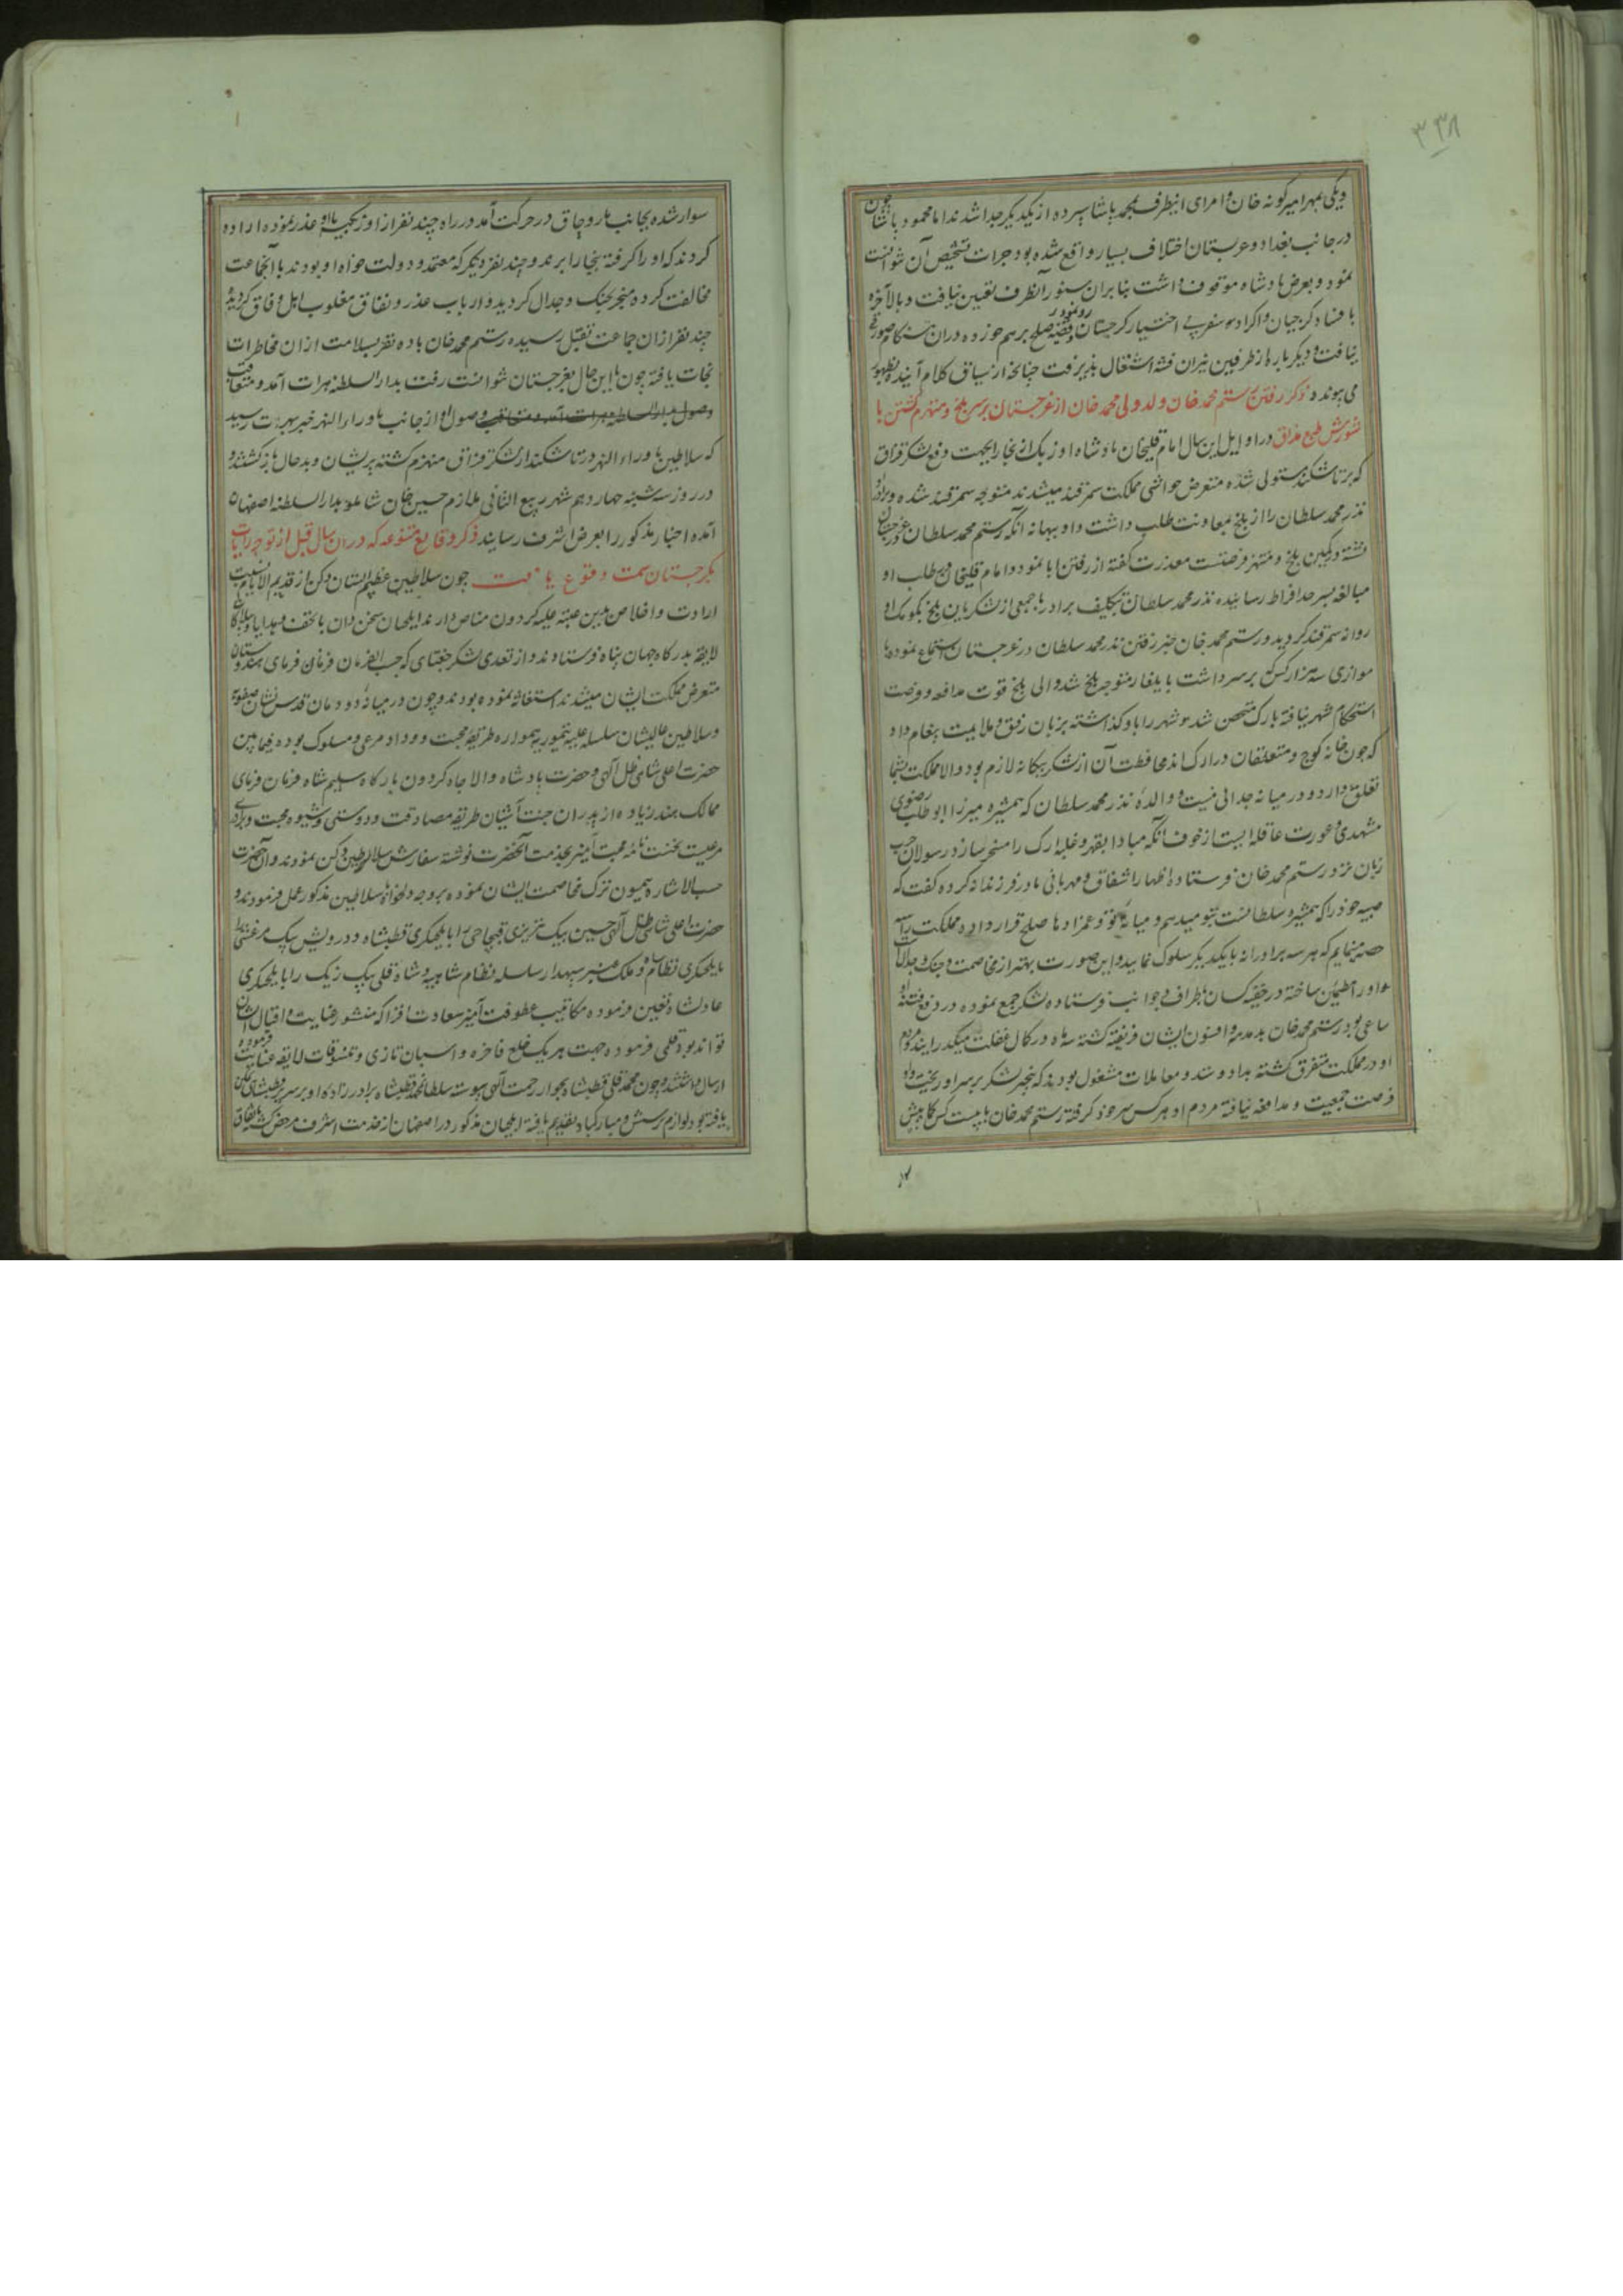 ۳۳۸
ویکی بمهر امیر گونه خان و امرای اینطرف بمحمد پاشا سپرده از یکدیگر جدا شدند اما محمود پاشا چون
در جانب بغداد و عربستان اختلاف بسیار واقع شده بود جرات تشخیص آن نتوانست
نمود و بعرض پادشاه موقوف داشت بنابران سنور آنطرف تعیین نیافت و بالآخره
با فساد گرجیان و اکراد سفر بی اختیار گرجستان روی نمود و قضیه صلح برهم خورده دران هنگام صورتی
نیافت و دیگر باره از طرفین نیران فتنه اشتعال پذیرفت چنانچه از سیاق کلام آینده بظهور
می پیوندد ذکر رفتن رستم محمد خان ولد ولی محمد خان از غرجستان بر سر بلخ و منهزم گشتن با
شورش طبع مذاق در اوایل این سال امام قلیخان پادشاه اوزبک از بخارا بجهت دفع لشکر قزاق
که بر تاشکند مستولی شده متعرض حواشی مملکت سمرقند میشدند متوجه سمرقند شده برادرش
نذر محمد سلطان را از بلخ بمعاونت طلب داشت و او ببهانه آنکه رستم محمد سلطان در غرجستان
نشسته در کمین بلخ و منتهز فرصتست معذرت گفته از رفتن ابا نمود و امام قلیخان در طلب او
مبالغه بسرحد افراط رسانیده نذر محمد سلطان بتکلیف برادر با جمعی از لشکریان بلخ بکومک او
روانه سمرقند گردید و رستم محمد خان خبر رفتن نذر محمد سلطان در غرجستان استماع نموده با
موازی سه هزار کس بر سر داشت بایلغار متوجه بلخ شد والی بلخ قوت مدافعه و فرصت
استحکام شهر نیافته بارک متحصن شد و شهر را باو گذاشته بزبان رفق و ملایمت پیغام داد
که چون خانه کوچ و متعلقان در ارک اند محافظت آن از لشکر بیگانه لازم بود و الا مملکت بشما
تعلق دارد و در میانه جدائی نیست و والدهٔ نذر محمد سلطان که همشیره میرزا ابو طالب رضوی
مشهدی و عورت عاقله ایست از خوف آنکه مبادا بقهر و غلبه ارک را مسخر سازد رسولان چرب
زبان نزد رستم محمد خان فرستاده اظهار اشفاق و مهربانی مادر فرزندانه کرده گفت که
صبیه خود را که همشیره سلطانست بتو میدهم و میانهٔ تو و عمزادها صلح قرار داده مملکت را سه
حصه مینمایم که هر سه برادرانه با یکدیگر سلوک نمایید و این صورت بهتر از مخاصمت و جنگ و جدالست
و او را مطمئن ساخته در خفیه کسان باطراف و جوانب فرستاده لشکر جمع نموده در دفع فتنه او
ساعی بود رستم محمد خان بدمدمه و افسون ایشان فریفته گشته سه ماه در کمال غفلت میگذرانید و مردم
او در مملکت متفرق گشته بداد و ستد و معاملات مشغول بودند که بیخبر لشکر بر سر او ریخت و او
فرصت جمعیت و مدافعه نیافته مردم او هر کس سر خود گرفته رستم محمد خان با بیست کس کما بیش
سوار شده بجانب ماروچاق در حرکت آمد در راه چند نفر از اوزبکیه با او غدر نموده اراده
کردند که او را گرفته ببخارا برند و چند نفر دیگر که معتمد و دولت خواه او بودند با آنجماعت
مخالفت کرده منجر بجنگ و جدال گردید و ارباب غدر و نفاق مغلوب اهل وفاق گردیده
چند نفر از ان جماعت بقتل رسیده رستم محمد خان با ده نفر بسلامت از ان مخاطرات
نجات یافته چون با این حال بغرجستان نتوانست رفت بدار السلطنه هرات آمد و متعاقب
وصول بدار السلطنه هرات آمد و متعاقب وصول او از جانب ماوراء النهر خبر بهرات رسید
که سلاطین ماوراء النهر در تاشکند از لشکر قزاق منهزم گشته پریشان و بدحال باز گشتند و
در روز سه شنبه چهاردهم شهر ربیع الثانی ملازم حسین خان شاملو بدار السلطنه اصفهان
آمده اخبار مذکور را بعرض اشرف رسانیدند ذکر وقایع متنوعه که دران سال قبل از توجه رایات
بگرجستان سمت وقوع یافت چون سلاطین عظیم الشان دکن از قدیم الایام نسبت
ارادت و اخلاص بدین عتبه علیه گردون مناص دارند ایلچیان سخن دان با تحف و هدایا و تبرکات
لایقه بدرگاه جهان پناه فرستاده و از تعدی لشکر جغتای که حسب الفرمان فرمان فرمای هندوستان
متعرض مملکت ایشان میشدند استغاثه نموده بودند و چون در میانه دودمان قدس نشان صفویه
و سلاطین عالیشان سلسله علیه تیموریه همواره طریقه محبت و وداد مرعی و مسلوک بوده فیمابین
حضرت اعلی شاهی ظل الهی و حضرت پادشاه والا جاه گردون بارگاه سلیم شاه فرمان فرمای
ممالک هند زیاده از پدران جنت آشیان طریقه مصادقت و دوستی و شیوه محبت و برادری
مرعیست نخست نامه محبت آمیز بخدمت آنحضرت نوشته سفارش سلاطین دکن نمودند و آنحضرت
حسب الاشاره همیون ترک مخاصمت ایشان نموده بر وجه دلخواه سلاطین مذکور عمل فرمودند و
حضرت اعلی شاهی ظل الهی حسین بیک تبریزی قبچاچی را بایلچیگری قطبشاه و درویش بیک مرعشی را
بایلچیگری نظام شاه و ملک عنبر سپهدار سلسله نظام شاهیه و شاه قلی بیک زیک را بایلچیگری
عادلشاه تعیین فرموده مکاتیب عطوفت آمیز سعادت افزا که منشور عنایت و اقبال ایشان
تواند بود قلمی فرموده جهت هر یک خلع فاخره و اسبان تازی و تنسوقات لایقه عنایت فرموده
ارسال داشتند و چون محمد قلی قطبشاه بجوار رحمت الهی پیوسته سلطان محمد قطبشاه برادر زاده او بر سریر قطبشاهی تمکن
یافته بود لوازم پرسش و مبارکباد بتقدیم یافته ایلچیان مذکور در اصفهان از خدمت اشرف مرخص گشته باتفاق